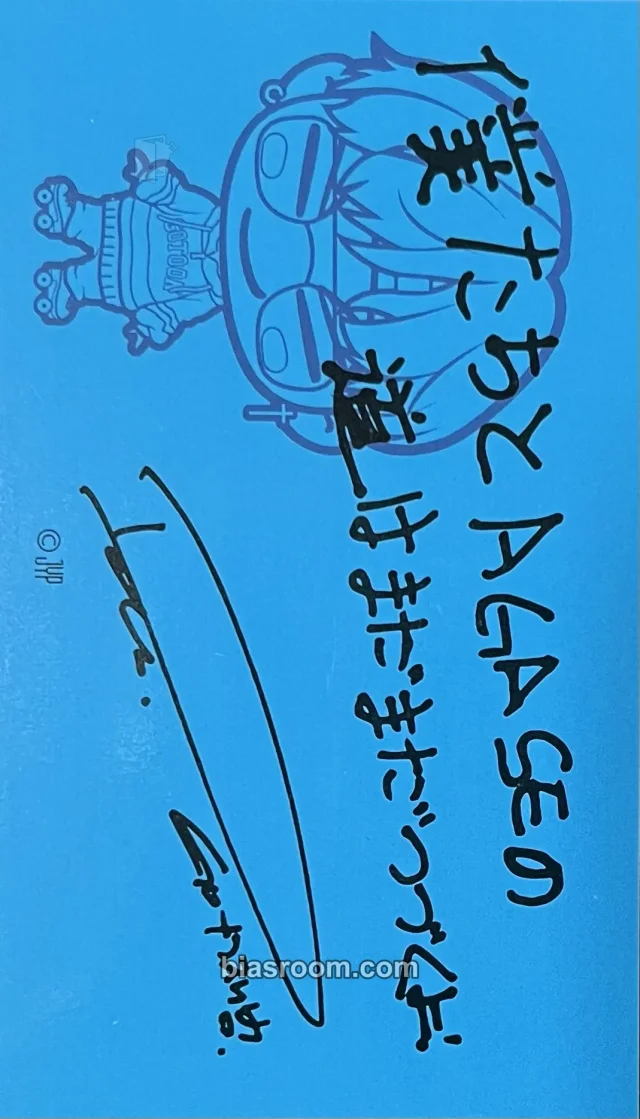 僕たちとAGASEの
道はまだまだつづく
© JYP
biasroom.com